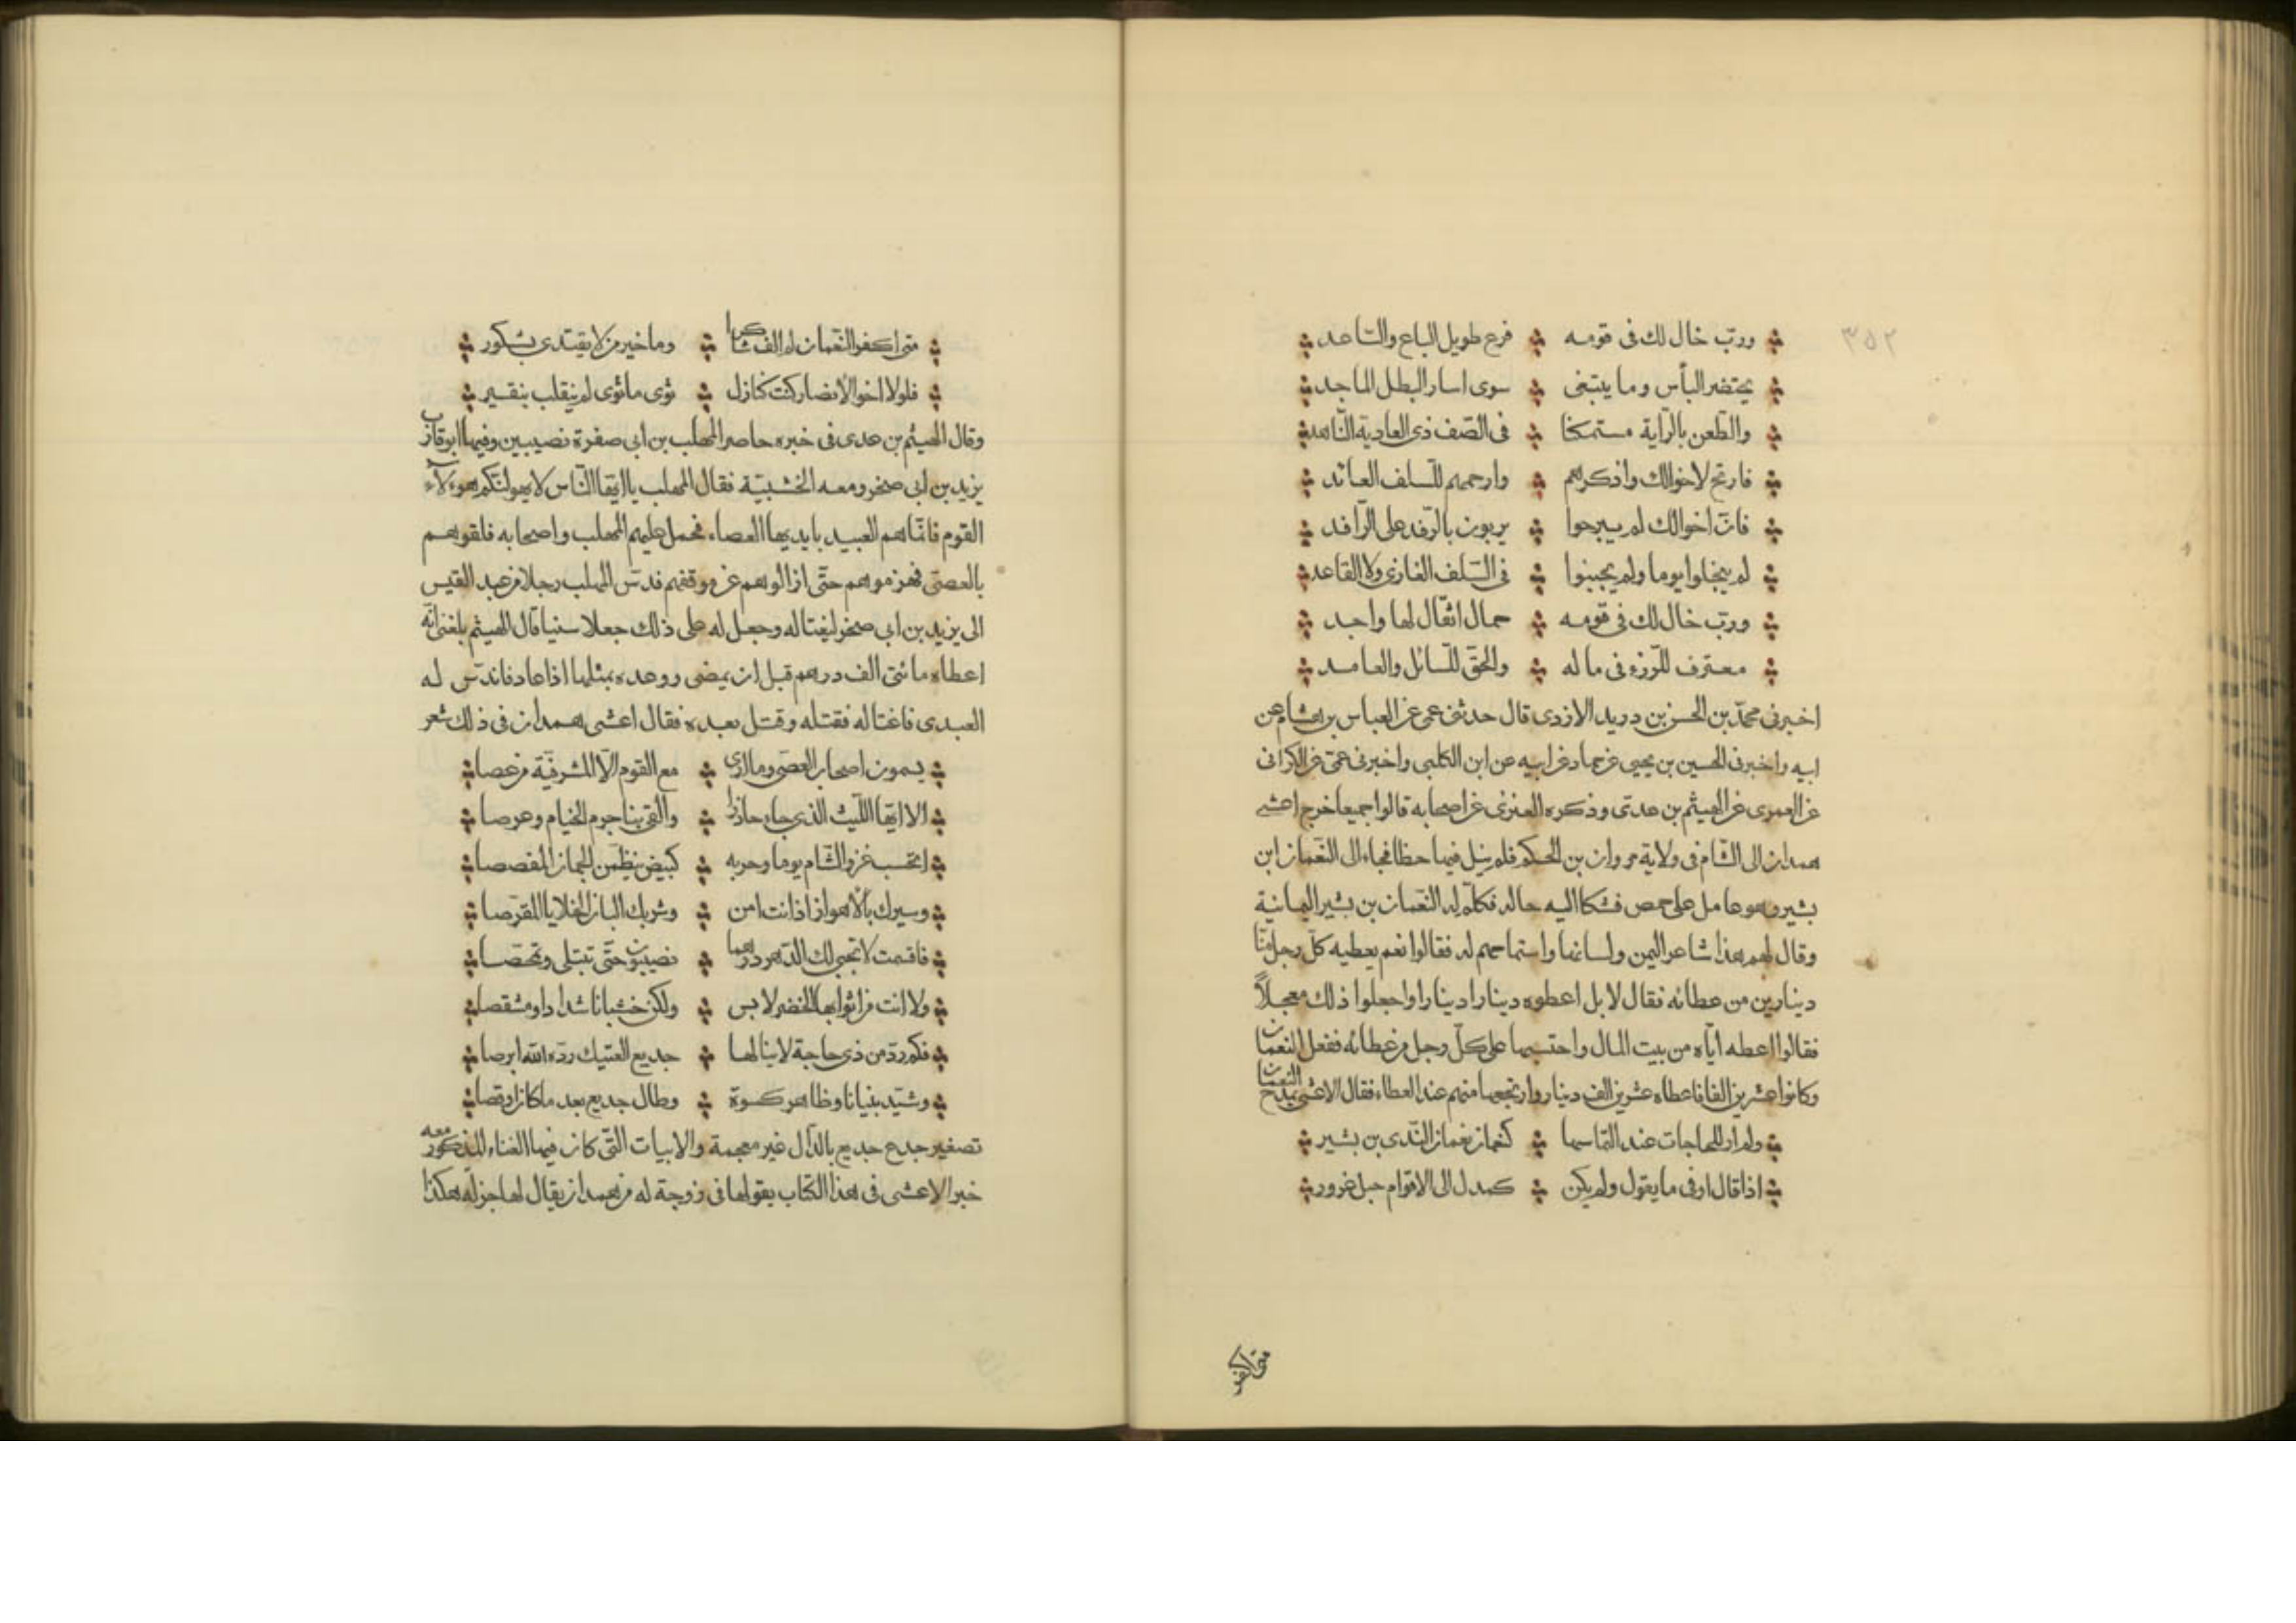 ٣٥٢
وربّ خال لك فى قومه فرع طويل الباع والسّاعد
يحتضر البأس وما يبتغى سوى اسار البطل الماجد
والطّعن بالرّاية مستمكنا فى الصّف ذى العادية النّاهد
فارتح لاخوالك واذكرهم وارحمهم للسلف العائد
فانّ اخوالك لم يبرحوا يربون بالرّفد على الرّافد
لم يبخلوا يوما ولم يجبنوا فى السّلف الغازى ولا القاعد
وربّ خال لك فى قومه حمال اثقال لها واجد
معترف للرّزء فى ماله والحقّ للسّائل والعامد
اخبرنى محمّد بن الحسن بن دريد الازدى قال حدثنى عمى عن العباس بن هشام عن
ابيه واخبرنى الحسين بن يحيى عن حماد عن ابيه عن ابن الكلبى واخبرنى عمّى عن الكرانى
عن العمرى عن الهيثم بن عدىّ وذكره العنزى عن اصحابه قالوا جميعا خرج اعشى
همدان الى الشّام فى ولاية مروان بن الحكم فلم ينل فيها حظا فجاء الى النّعمان ابن
بشير وهو عامل على حمص فشكا اليه حاله فكلّم له النّعمان بن بشير اليمانية
وقال لهم هذا شاعر اليمن ولسانها واستماحهم له فقالوا نعم يعطيه كلّ رجل منّا
دينارين من عطائه فقال لا بل اعطوه دينارا دينارا واجعلوا ذلك معجلاً
فقالوا اعطه ايّاه من بيت المال واحتسبها على كلّ رجل من عطائه ففعل النعمان
وكانوا عشرين الفا فاعطاه عشرين الف دينار وارتجعها منهم عند العطاء فقال الاعشى يمدح النعمان
ولم ار للحاجات عند التماسها كنعمان نعمان النّدى بن بشير
اذا قال اوفى ما يقول ولم يكن كمدل الى الاقوام حبل غرور
متى اكفر
متى اكفر النّعمان لم الف شاكرا وما خير من لا يقتدى بشكور
فلولا اخو الانصار كنت كنازل ثوى ما ثوى لم ينقلب بنقير
وقال الهيثم بن عدى فى خبره حاصر المهلب بن ابى صفرة نصيبين وفيها ابو قارب
يزيد بن ابى صخر ومعه الخشبيّة فقال المهلب يا ايّها النّاس لا يهولنّكم هوءلآء
القوم فانّما هم العبيد بايديها العصاء فحمل عليهم المهلب واصحابه فلقوهم
بالعصىّ فهزموهم حتّى ازالوهم عن موقفهم فدسّ المهلب رجلا من عبد القيس
الى يزيد بن ابى صخر ليغتاله وجعل له على ذلك جعلا سنيا قال الهيثم بلغنى انّه
اعطاه مائتى الف درهم قبل ان يمضى ووعده بمثلها اذا عاد فاندسّ له
العبدى فاغتاله فقتله وقتل بعده فقال اعشى همدان فى ذلك شعر
يسمون اصحاب العصى وما ارى مع القوم الّا المشرفيّة من عصا
الا ايّها اللّيث الذى جاء حاذرا والقى بنا جرم الخيام وعرصا
اتحسب غزو الشّام يوما وحربه كبيض ينظمن الجمان المفصصا
وسيرك بالأهواز اذ انت امن وشربك البان الخلايا المقرّصا
فاقسمت لا تجبى لك الدّهر درهما نصيبون حتّى تبتلى وتمحّصا
ولا انت من اثوابها الخضر لابس ولكن خشبانا شدادا ومشقصا
فكم ردّ من ذى حاجة لا ينالها جديع العتيك ردّه الله ابرصا
وشيّد بنيانا وظاهر كسوة وطال جديع بعد ما كان اوقصا
تصغير جدع جديع بالدّال غير معجمة والابيات التّى كان فيها الغناء المذكور معه
خبر الاعشى فى هذا الكتاب يقولها فى زوجة له من همدان يقال لها جزلة هكذا